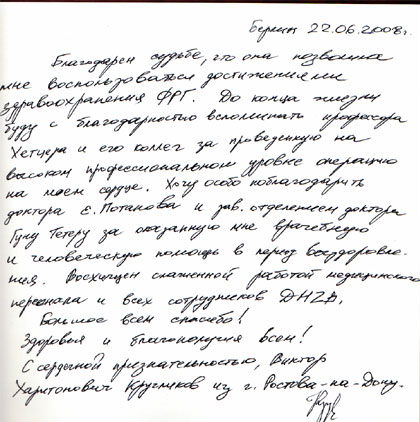 Берлин 22.06.2008г.
Благодарен судьбе, что она позволила
мне воспользоваться достижениями
здравоохранения ФРГ. До конца жизни
буду с благодарностью вспоминать профессора
Хетцера и его коллег за проведенную на
высоком профессиональном уровне операцию
на моем сердце. Хочу особо поблагодарить
доктора Е. Потапова и зав. отделением доктора
Гуну Тетеру за оказанную мне врачебную
и человеческую помощь в период выздоровле-
ния. Восхищен слаженной работой медицинского
персонала и всех сотрудников DHZB.
Большое всем спасибо!
Здоровья и благополучия всем!
С сердечной признательностью, Виктор
Харитонович Кругликов из г. Ростова-на-Дону.